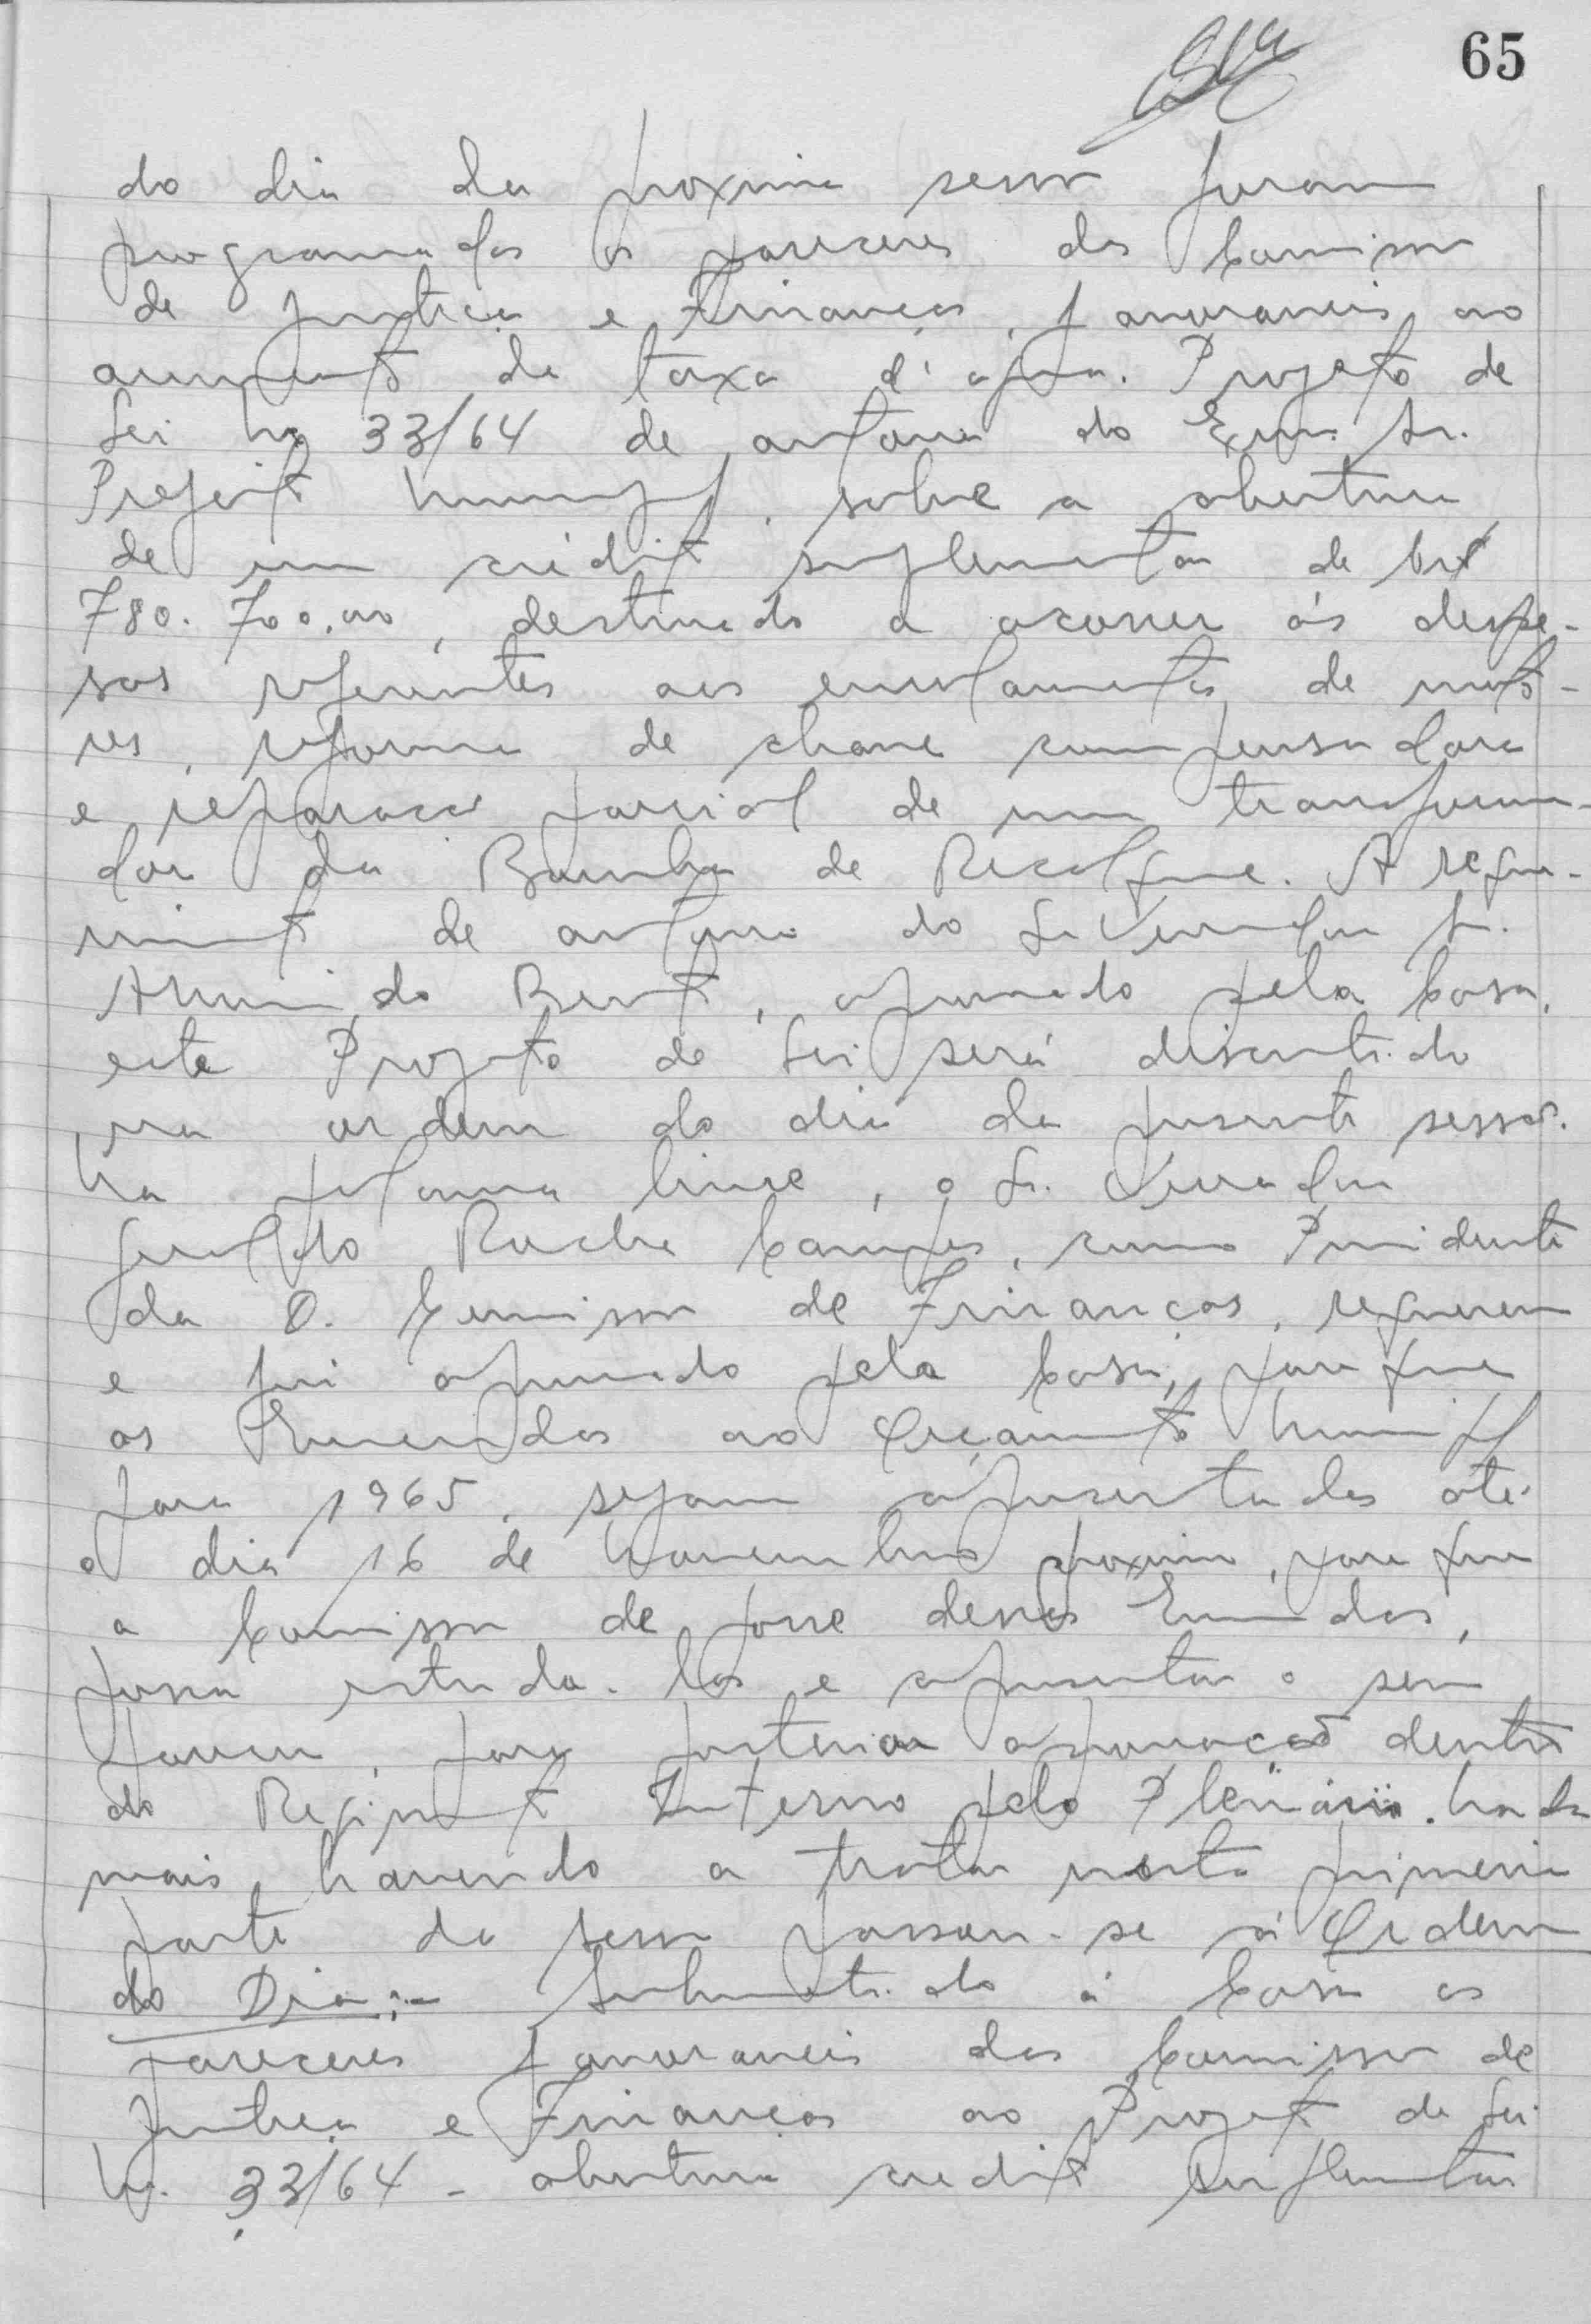 65
do dia da proxima sessão foram
programados os pareceres da Comissão
de Justiça e Finanças, favoraveis ao
aumento da taxa d'agua. Projeto de
Lei nº 33/64 de autoria do Exmo. Sr.
Prefeito Municipal, sobre a abertura
de um crédito suplementar de Cr$
780.700,00, destinado a ocorrer ás despe-
sas referentes aos enrolamentos de moto-
res, reforma de chave compensadora
e reparação parcial de um transforma-
dor da Bomba de Recalque. A reque-
rimento de autoria do Sr. Vereador Sr.
Armindo Bento, aprovado pela Casa,
este Projeto de Lei será discutido
na ordem do dia da presente sessão.
Na palavra livre, o Sr. Vereador
Geraldo Rocha Campos, como Presidente
da D. Comissão de Finanças, requereu
e foi aprovado pela Casa, para que
as Emendas ao Orçamento Municipal
para 1965, sejam apresentadas até
o dia 16 de Novembro proximo, para que
a Comissão de posse dessas Emendas,
possa estuda-las e apresentar o seu
parecer, para posterior aprovação dentro
do Regimento Interno pelo Plenário. Nada
mais havendo a tratar nesta primeira
parte da sessão passou-se á Ordem
do Dia:- Submetido á Casa os
pareceres favoraveis das Comissão de
Justiça e Finanças ao Projeto de Lei
Nº. 33/64 - abertura credito suplementar